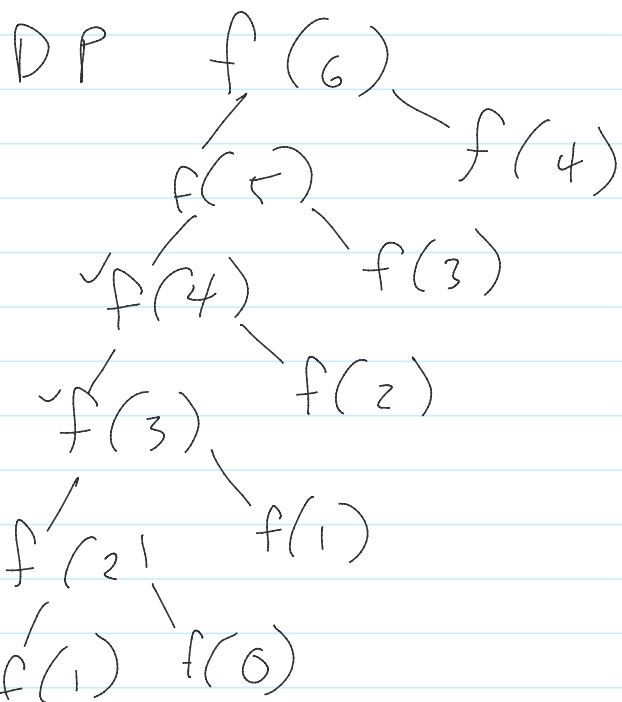 DP f(6)
f(5) f(4)
f(4) f(3)
f(3) f(2)
f(2) f(1)
f(1) f(0)